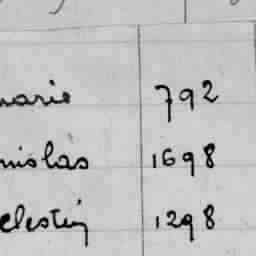 marie 792
nislas 1698
elestin 1298